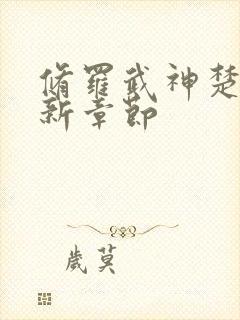 脩羅武神楚
新章節
歲莫